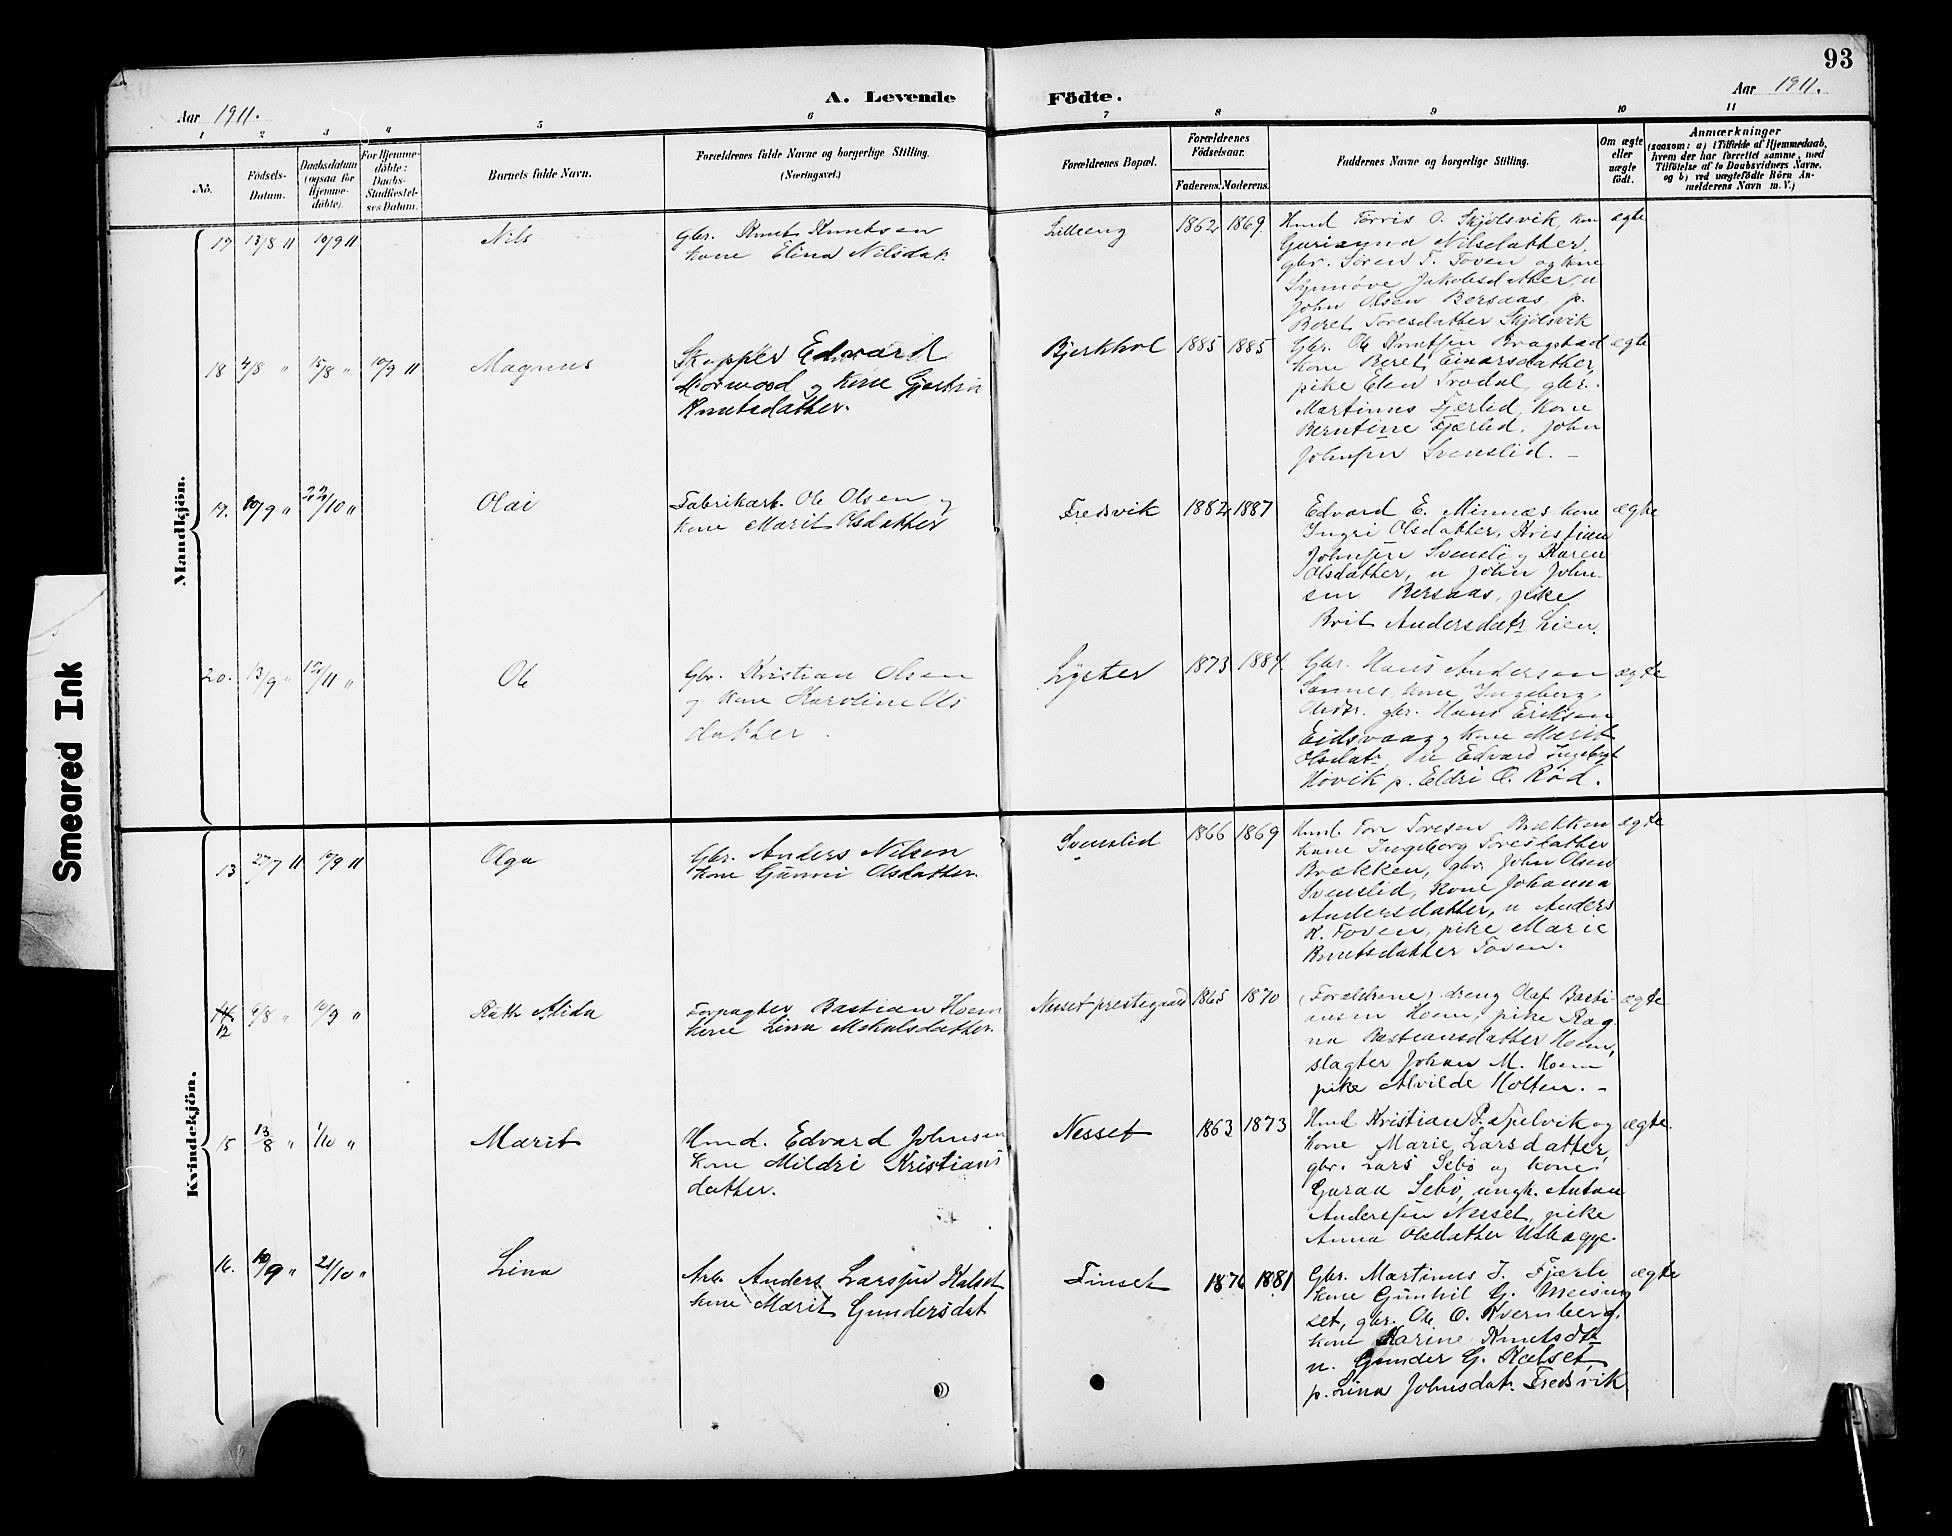 93
A. Levende Födte.
Aar 1911.
Aar 1911.
1 2 3 4 5 6 7 8 9 10 11
No.
Födsels-
Datum.
Daabsdatum
(ogsaa for
Hjemme-
döbte).
For Hjemme-
döbte:
Daabs-
Stadfæstel-
ses Datum.
Barnets fulde Navn.
Forældrenes fulde Navne og borgerlige Stilling.
(Næringsvei.)
Forældrenes Bopæl.
Forældrenes
Födselsaar.
Faderens.
Moderens.
Faddernes Navne og borgerlige Stilling.
Om ægte
eller
uægte
födt.
Anmærkninger
(saasom: a) i Tilfælde af Hjemmedaab,
hvem der har forrettet samme, med
Tilföielse af to Daabsvidners Navne,
og b) ved uægtefödte Börn An-
melderens Navn m. V.)
Mandkjön.
17 13/8 11 10/9 11 Nils
Gbr. Knut Knutsen
kone Elina Nilsdat.
Lilleeng 1862 1869
Hmd Torris O. Skjølsvik, kon
Gurianna Nilsdatter,
gbr. Søren T. Toven og kone
Synnøve Jakobsdatter, u
John Olsen Bersaas, p.
Beret Toresdatter Skjölsvik
ægte
18 4/8 " 15/8 " 10/9 11 Magnus
Skipper Edvard
Morwood og kone Gjertin
Knutsdatter.
Bjerkhol 1885 1885
Gbr. Ole Knutsen Bragstad
kone Beret Einarsdatter,
pike Elen Trodal, gbr.
Martinus Fjærlid, kone
Berntine Fjærlid, John
Johnsen Svenslid. –
ægte
19. 10/9 " 22/10 " Olai
Fabrikarb. Ole Olsen og
kone Marit Olsdatter
Fredsvik 1882 1887
Edvard E. Minnæs kone
Ingri Olsdatter, Kristian
Johnsen Svensli og Karen
Olsdatter, u John John-
sen Bersaas, pike
Brit Andersdatr Lien.
ægte
20. 13/9 " 12/11 " Ole
Gbr. Kristian Olsen
og kone Karoline Ols
datter.
Lyckter 1873 1884.
Gbr. Hans Andersen
Sannes, kone Ingeborg
gbr. Hans Eriksen
Eidsvaag og kone Marit
Olsdatr Edvard Ingebrgt
Hovik p. Eldri O. Rød.
ægte
Kvindekjön.
13 27/7 11 10/9 11 Olga
Gbr. Anders Nilsen
kone Gunni Olsdatter.
Svenslid 1866 1869
Hmd. Tore Toresen Brækken
kone Ingeborg Toresdatter
Brækken, gbr. John Olsen
Svenslid, kone Johanna
Andersdatter, u Anders
K. Toven, pike Marie
Knutsdatter Toven.
ægte
14. 6/8 " 10/9 " Ruth Alida
Forpagter Bastian Hoem
kone Lina Mekalsdatter.
Nesset prestegaard 1865 1870
(Forældrene) dreng Olaf Basti-
ansen Hoem, pike Rag-
na Bastiansdatter Hoem,
slagter Johan M. Hoem
pike Alvilde Holten. –
ægte
15 13/8 " 1/10 " Marit
Hmd. Edvard Johnsen
kone Mildri Kristians
datter.
Nesset 1863 1873
Hmd Kristian P. Spelvik og
kone Marie Larsdatter,
gbr. Lars Sebø og kone
Guraa Sebø, ungk. Anton
Andersen Nesset, pike
Anna Olsdatter Utbagge.
ægte.
16. 10/9 " 21/10 " Lina
Arb. Anders Larsen Kalset
kone Marit Gundersdat
Finset 1876 1881
Gbr. Martinus J. Fjærli
kone Gunhil G. Meising
set, gbr. Ole O. Kvernberg,
kone Karine Knutsdtr
u. Gunder G. Kalset,
p. Lina Johnsdatr Fredsvik
ægte
Smeared Ink